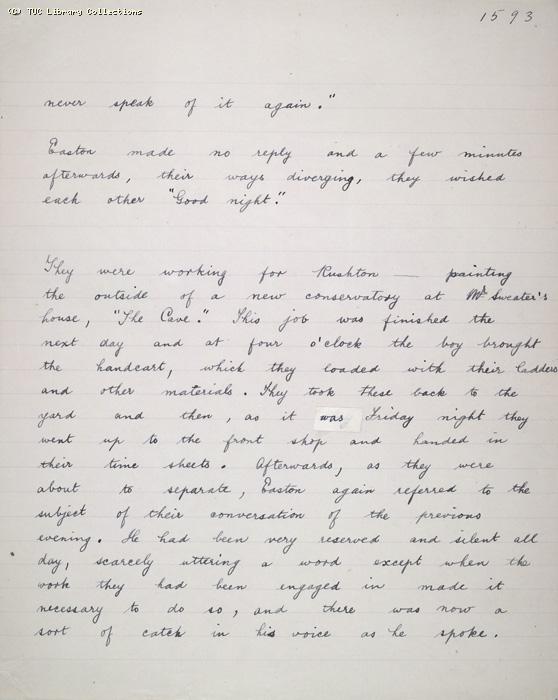 (C) TUC Library Collections
1593
never speak of it again."
Easton made no reply and a few minutes
afterwards, their ways diverging, they wished
each other "Good night."
They were working for Rushton — painting
the outside of a new conservatory at Mr Sweater's
house, "The Cave." This job was finished the
next day and at four o'clock the boy brought
the handcart, which they loaded with their ladders
and other materials. They took these back to the
yard and then, as it was Friday night they
went up to the front shop and handed in
their time sheets. Afterwards, as they were
about to separate, Easton again referred to the
subject of their conversation of the previous
evening. He had been very reserved and silent all
day, scarcely uttering a word except when the
work they had been engaged in made it
necessary to do so, and there was now a
sort of catch in his voice as he spoke.